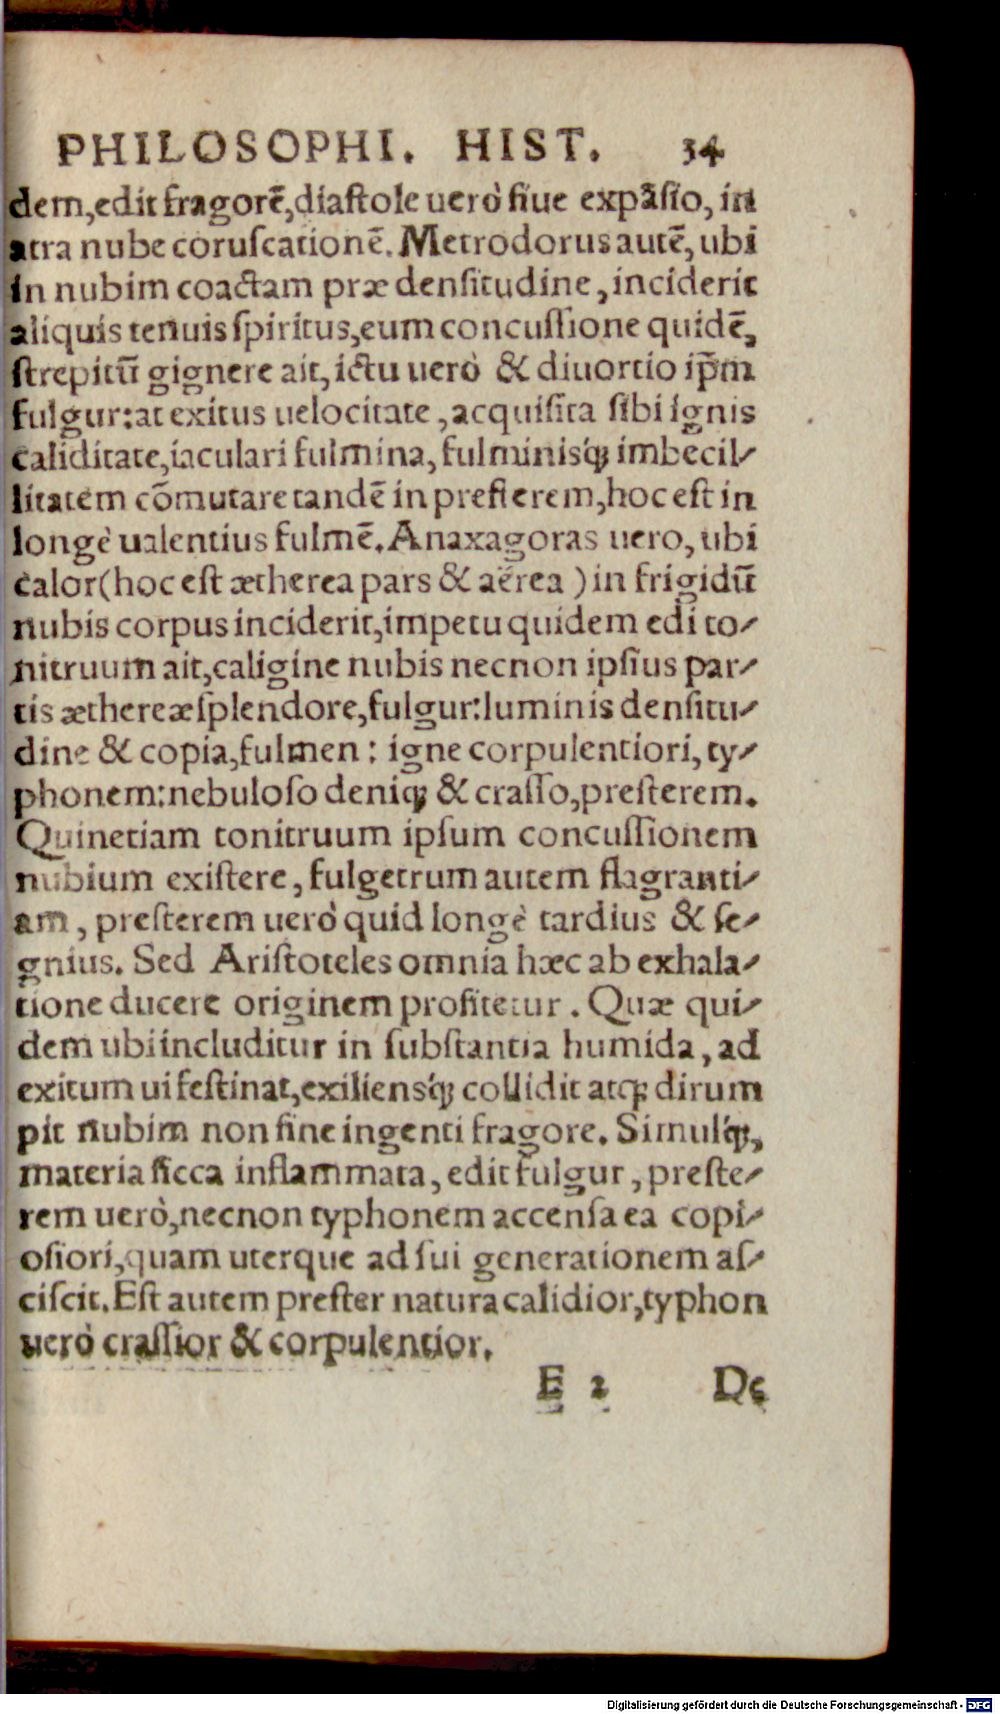 PHILOSOPHI. HIST. 34
dem,edit fragorẽ,diaſtole uerò ſiue expãſio, in
atra nube coruſcationẽ. Metrodorus autẽ, ubi
in nubim coactam præ denſitudine, inciderit
aliquis tenuis ſpiritus,eum concuſſione quidẽ,
ſtrepitũ gignere ait, ictu uerò & diuortio ip̃m
fulgur:at exitus uelocitate, acquiſita ſibi ignis
caliditate,iaculari fulmina, fulminisq́; imbecil-
litatem cõmutare tandẽ in preſterem,hoc eſt in
longè ualentius fulmẽ. Anaxagoras uero, ubi
calor(hoc eſt ætherea pars & aërea) in frigidũ
nubis corpus inciderit,impetu quidem edi to-
nitruum ait,caligine nubis necnon ipſius par-
tis æthereæ ſplendore,fulgur:luminis denſitu-
dine & copia,fulmen: igne corpulentiori, ty-
phonem:nebuloſo deniq; & craſſo,preſterem.
Quinetiam tonitruum ipſum concuſſionem
nubium exiſtere, fulgetrum autem flagranti-
am, preſterem uerò quid longè tardius & ſe-
gnius. Sed Ariſtoteles omnia hæc ab exhala-
tione ducere originem profitetur. Quæ qui-
dem ubi includitur in ſubſtantia humida, ad
exitum ui feſtinat,exiliensq́; collidit atq; dirum
pit nubim non ſine ingenti fragore. Simulq́;,
materia ſicca inflammata, edit fulgur, preſte-
rem uerò,necnon typhonem accenſa ea copi-
oſiori,quam uterque ad ſui generationem aſ-
ciſcit. Eſt autem preſter natura calidior,typhon
uerò craſſior & corpulentior.
E 2 De
Digitalisierung gefördert durch die Deutsche Forschungsgemeinschaft - DFG